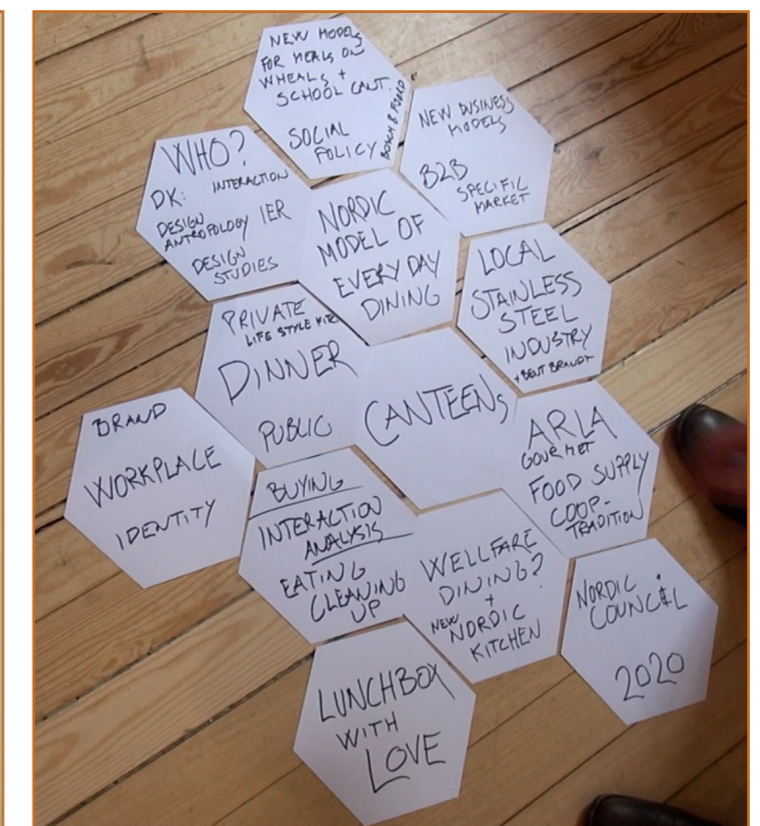 NEW MODELS
FOR MEALS ON
WHEALS +
SCHOOL CANT.
SOCIAL
POLICY
NEW BUSINESS
MODELS
B2B
SPECIFIC
MARKET
WHO?
INTERACTION
DK:
DESIGN
ANTROPOLOGY IER
DESIGN
STUDIES
NORDIC
MODEL OF
EVERY DAY
DINING
LOCAL
STAINLESS
STEEL
INDUSTRY
+ BENT BRANDT
PRIVATE
LIFE STYLE
DINNER
PUBLIC
CANTEENS
ARLA
GOURMET
FOOD SUPPLY
COOP-
TRADITION
BRAND
WORKPLACE
IDENTITY
BUYING
INTERACTION
ANALYSIS
EATING
CLEANING
UP
WELLFARE
DINING?
+
NEW NORDIC
KITCHEN
NORDIC
COUNCIL
2020
LUNCHBOX
WITH
LOVE